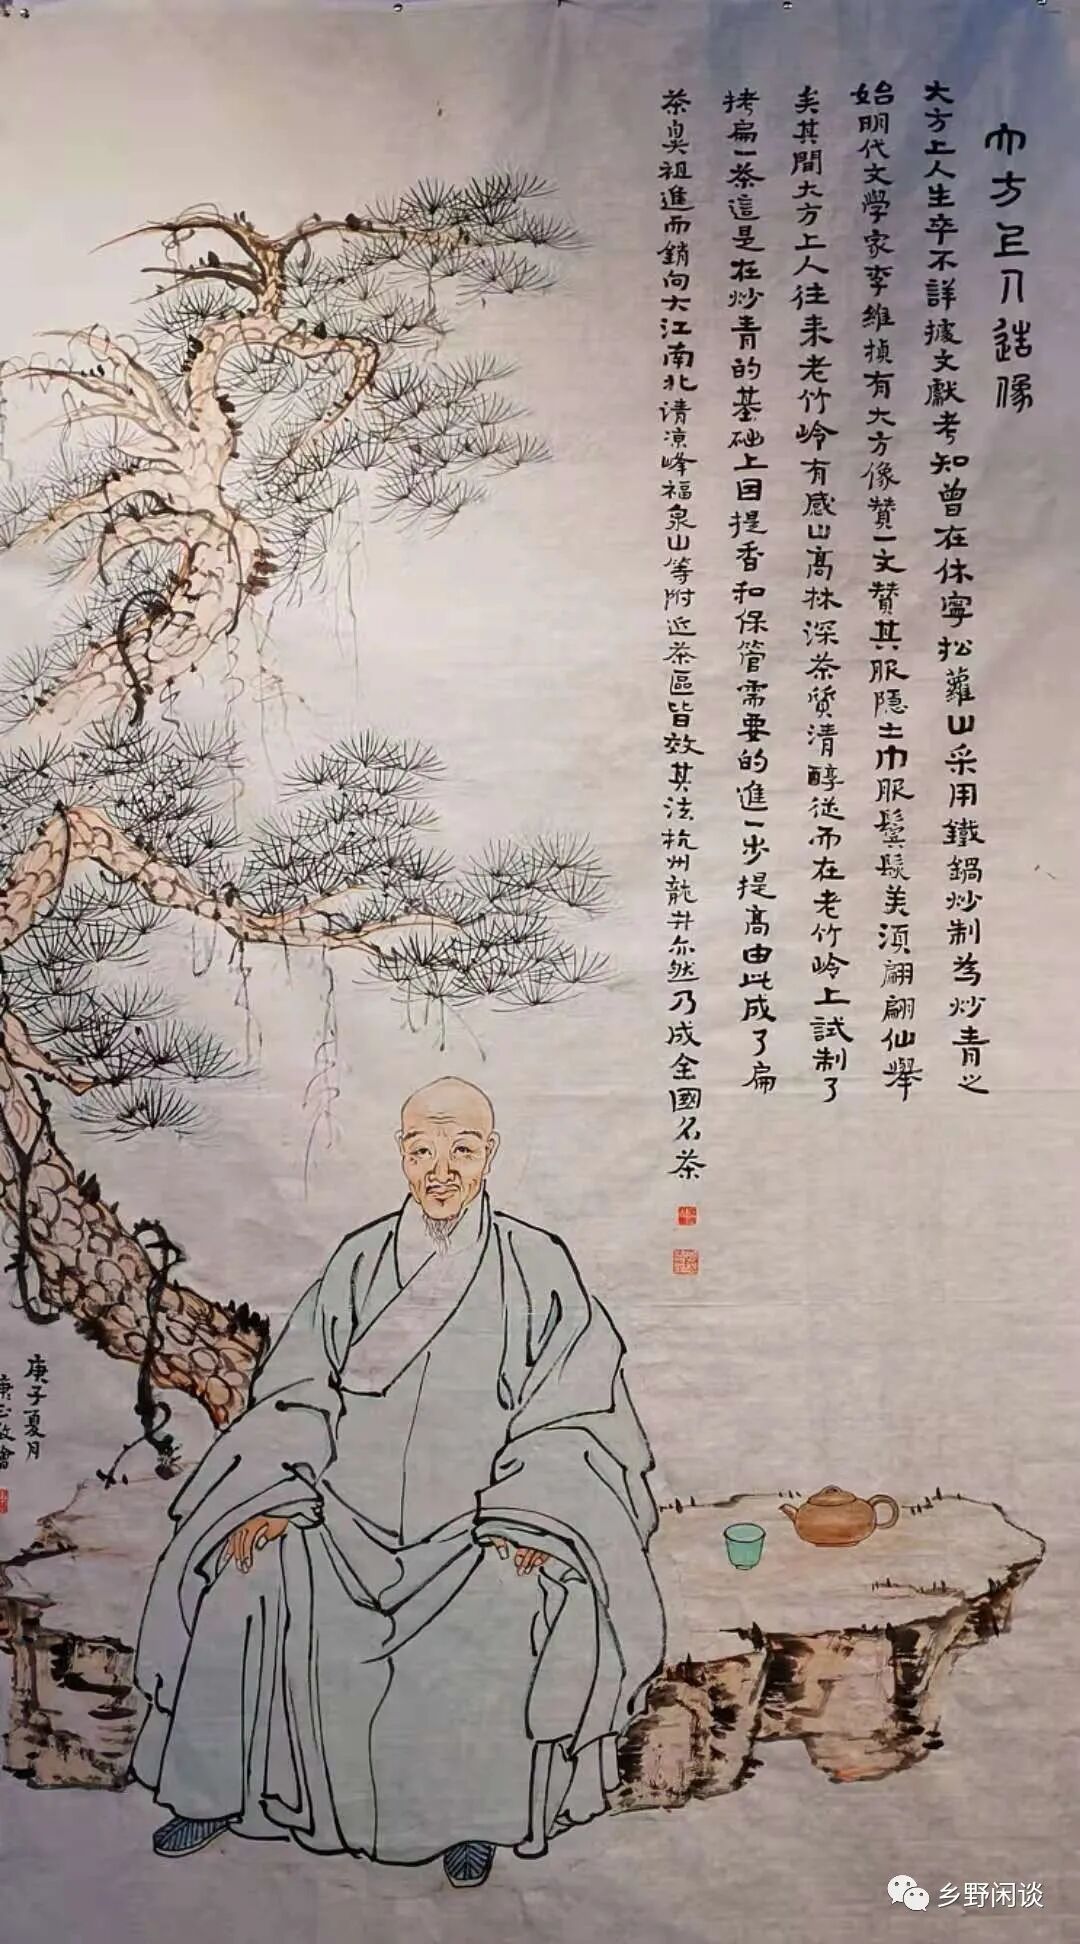 大方上人造像
大方上人生卒不詳據文獻考知曾在休寧松蘿山采用鐵鍋炒制為炒青之
始明代文學家李維楨有大方像贊一文贊其服隱士巾服鬓鬆美須翩翩仙舉
矣其間大方上人往来老竹岭有感山高林深茶質清醇從而在老竹岭上試制了
拷扁一茶這是在炒青的基础上因提香和保管需要的進一步提高由此成了扁
茶臭祖進而銷向大江南北请凉峰福泉山等附近茶區皆效其法杭州龍井亦然乃成全國名茶
庚子夏月
乡野闲谈